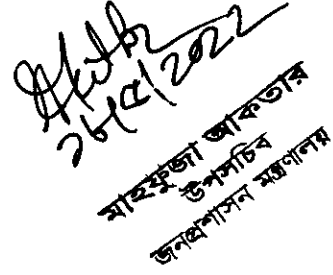 ২৮/৫/২০২২
মাহফুজা আকতার
উপসচিব
জনপ্রশাসন মন্ত্রণালয়